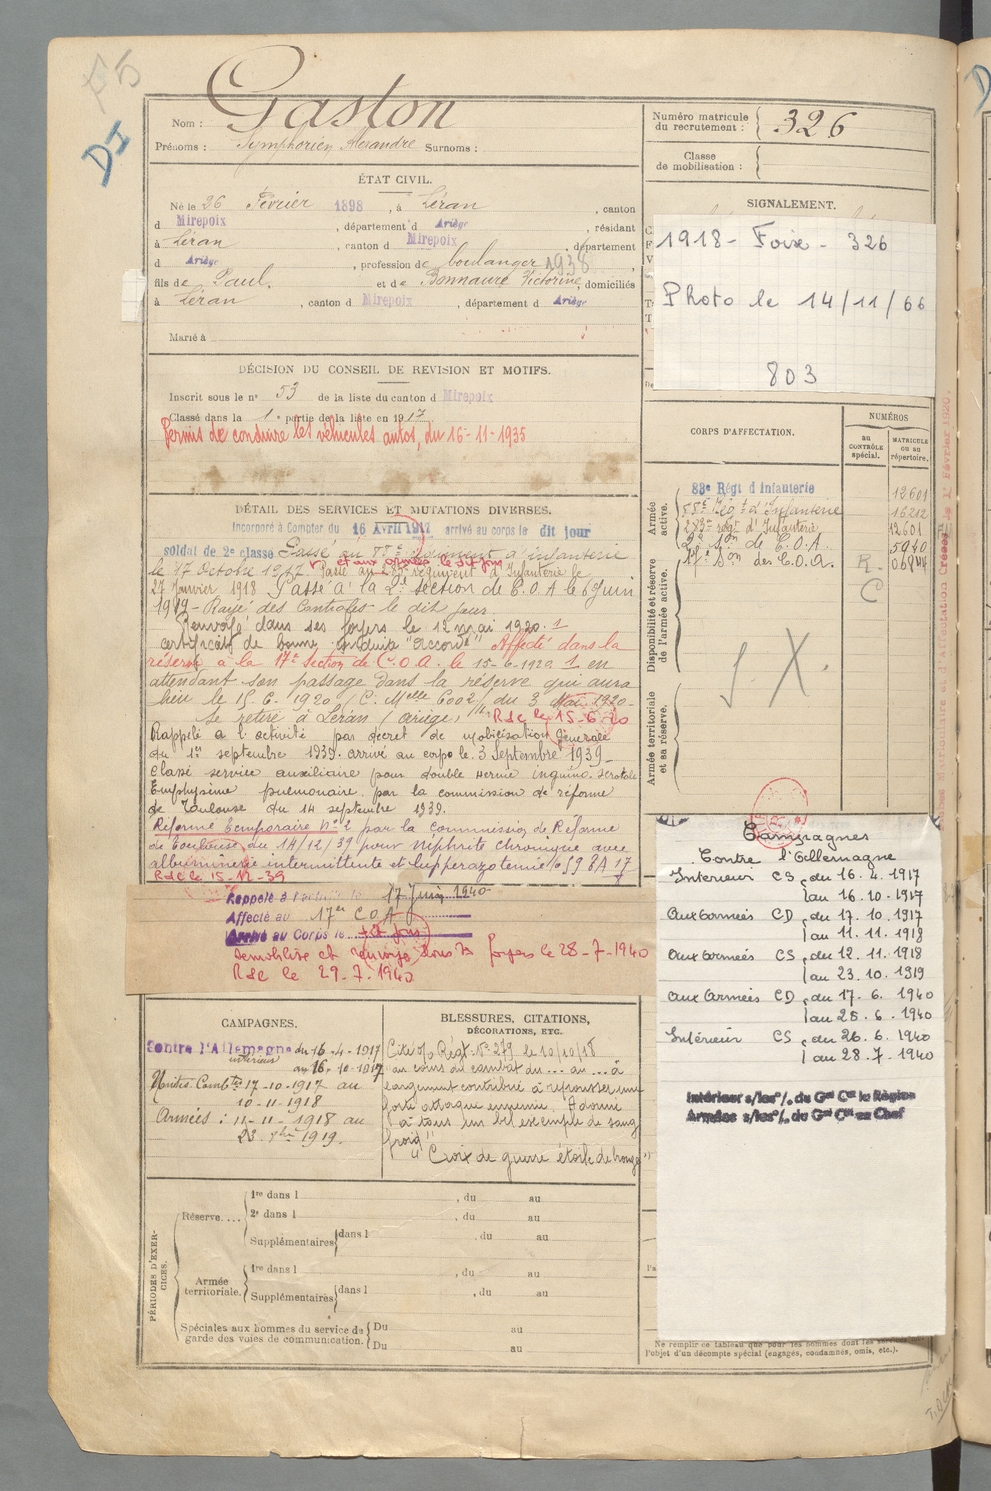 F5
DI
Nom : Gaston
Prénoms : Symphorien Alexandre Surnoms :
Numéro matricule du recrutement : 326
Classe de mobilisation :
ÉTAT CIVIL.
Né le 26 Février 1898, à Léran, canton
d Mirepoix, département d Ariège, résidant
à Léran, canton d Mirepoix, département
d Ariège, profession de boulanger 1938
fils de Paul, et de Bonnaure Victorine, domiciliés
à Léran, canton d Mirepoix, département d Ariège
Marié à
SIGNALEMENT.
1918 - Foix - 326
Photo le 14/11/66
803
DÉCISION DU CONSEIL DE REVISION ET MOTIFS.
Inscrit sous le n° 53 de la liste du canton d Mirepoix
Classé dans la 1e partie de la liste en 1917
Permis de conduire les véhicules autos, du 16-11-1935
DÉTAIL DES SERVICES ET MUTATIONS DIVERSES.
Incorporé à Compter du 16 Avril 1917 arrivé au corps le dit jour
soldat de 2e classe Passé au régiment d'infanterie
et aux armées le
le 17 Octobre 1917 Passé au 283e régiment d'Infanterie le
27 Janvier 1918 Passé à la 2e section de C.O.A le 6 Juin
1919 - Rayé des Contrôles le dit jour.
Renvoyé dans ses foyers le 12 mai 1920.
certificat de bonne conduite "Accordé" Affecté dans la
réserve à la 17e Section de C.O.A. le 15-6-1920 en
attendant son passage dans la réserve qui aura
lieu le 15.6.1920 (C. Melle 6002/ du 3 Mai 1920-
Se retire à Léran (Ariège) R.d.c le 15-6-20
Rappelé à l'activité par decret de mobilisation Générale
du 1er septembre 1939. arrivé au corps le 3 Septembre 1939-
Classé service auxiliaire pour double hernie inguino-scrotale
Emphysème pulmonaire par la commission de réforme
de Toulouse du 14 septembre 1939.
Réforme Temporaire N° 2 par la Commission de Réforme
de Toulouse du 14/12/39 pour néphrite chronique avec
albuminerie intermittente et hyperazotemie 0,59
R.d.c le 15-12-39
Rappelé à l'activité le 17 Juin 1940
Affecté au 17e COA
Arrivé au Corps le
démobilisé et renvoyé dans ses foyers le 28-7-1940
R.d.c le 29.7.1940
CORPS D'AFFECTATION.
NUMÉROS
au CONTRÔLE spécial.
MATRICULE ou au répertoire.
Armée active.
83e Régt d infanterie 12601
Régt d'Infanterie 16212
283e régt d'Infanterie 12601
2e Son de C.O.A. 5940
Disponibilité et réserve de l'armée active.
17e Son de C.O.A. R.C
Armée territoriale et sa réserve.
S. X.
Campagnes
Contre l'Allemagne
Interieur CS du 16.4.1917
au 16.10.1917
aux armées CD du 17.10.1917
au 11.11.1918
aux armées CS du 12.11.1918
au 23.10.1919
aux armées CD du 17.6.1940
au 25.6.1940
Intérieur CS du 26.6.1940
au 28.7.1940
Intérieur s/les o/. du Gal Ct la Région
Armées s/les o/. du Gal Ct en Chef
CAMPAGNES.
Contre l'Allemagne du 16-4-1917
intérieur au 16.10-1917
Unités Combtes 17-10-1917 au
10-11-1918
Armées : 11-11-1918 au
1919.
BLESSURES, CITATIONS, DÉCORATIONS, ETC.
Cité o/ Régt N° 279 le 10/10/18
"au cours du combat du... au... à
largement contribué à repousser une
forte attaque ennemie. A donné
à tous un bel exemple de sang
froid"
"Croix de guerre étoile de bronze"
PÉRIODES D'EXERCICES.
Réserve....
1re dans l , du au
2e dans l , du au
Supplémentaires dans l , du au
Armée territoriale.
1re dans l , du au
Supplémentaires dans l , du au
Spéciales aux hommes du service de garde des voies de communication.
Du au
Du au
Ne remplir ce tableau que pour les hommes dont les services
l'objet d'un décompte spécial (engagés, condamnés, omis, etc.).